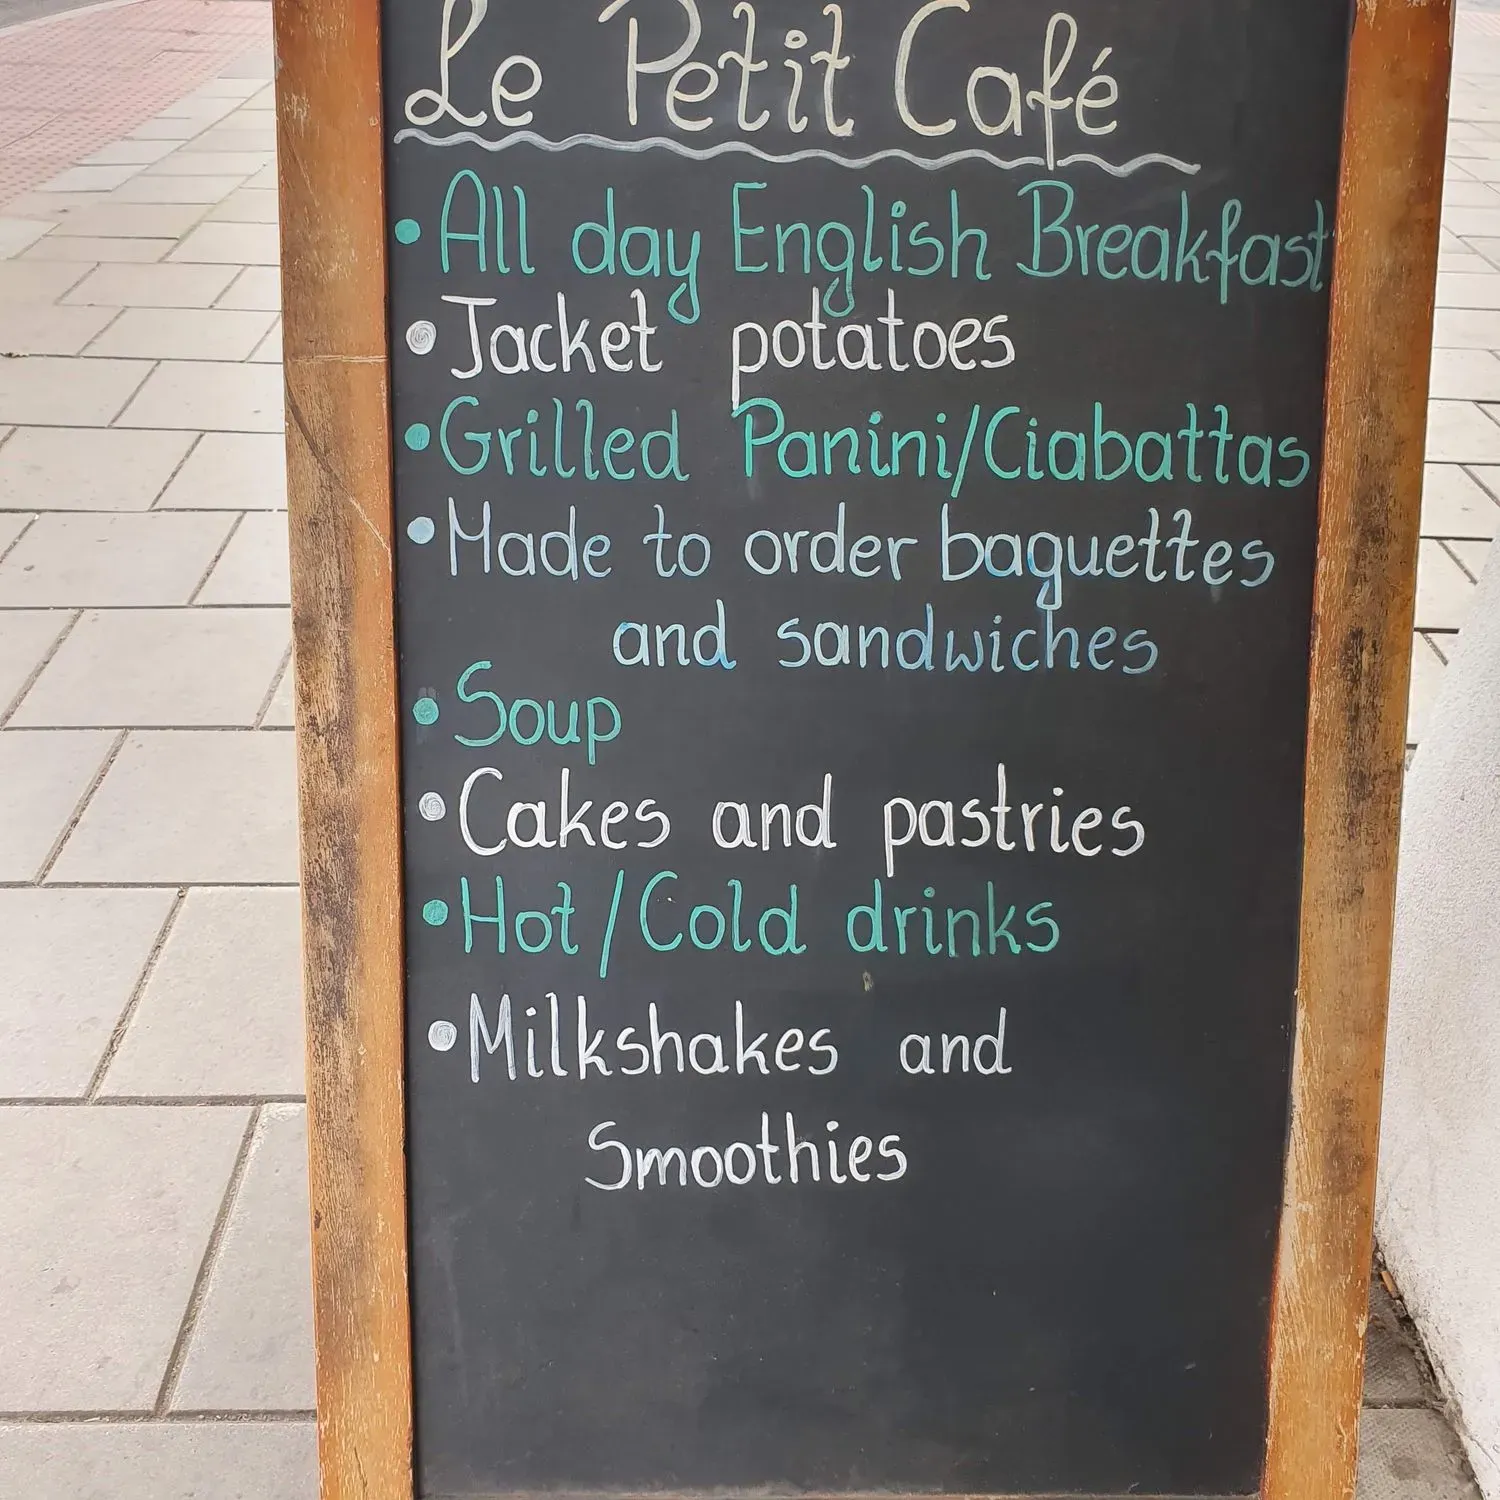 Le Petit Café
• All day English Breakfast
• Jacket potatoes
• Grilled Panini/Ciabattas
• Made to order baguettes
and sandwiches
• Soup
• Cakes and pastries
• Hot/Cold drinks
• Milkshakes and
Smoothies